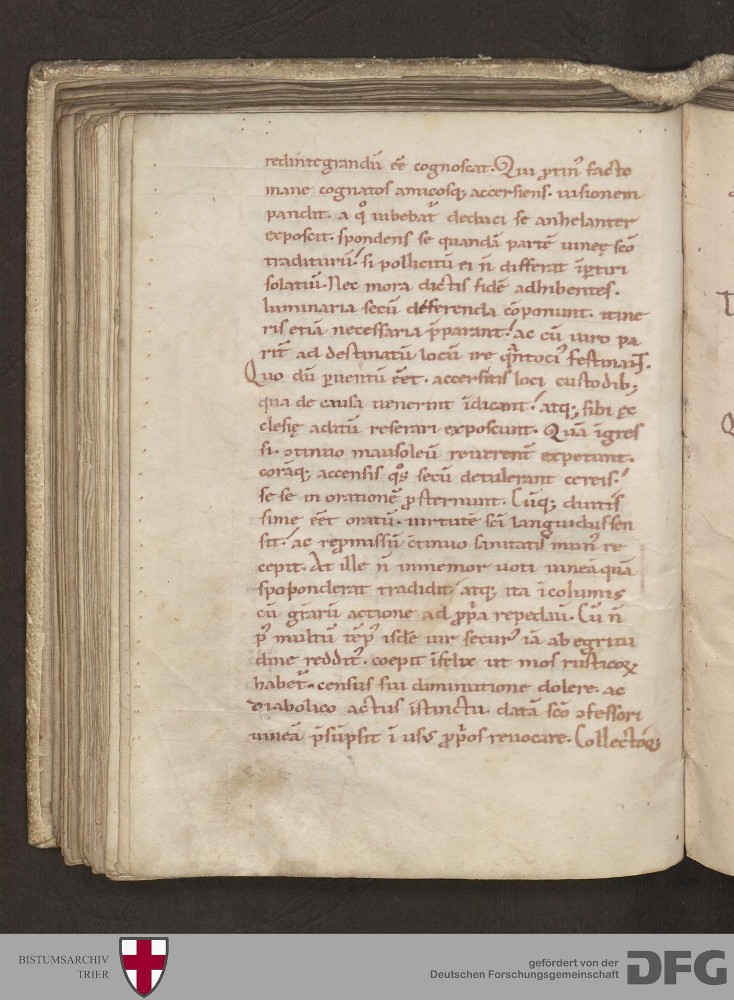 redintegrandū ēē cognoscat. Qui ꝓtin᷒ facto
mane cognatos amicosq; accersiens. uisionem
pandit. a qͦ iubebat᷒ deduci se anhelanter
exposcit. spondens se quandā partē uineę scō
traditurū. si pollicitū ei n̄ differat īꝑtiri
solatiū. Nec mora dictis fidē adhibentes.
luminaria secū deferenda cōponunt. itine
ris etiā necessaria p̄parant. ac cū uiro pa
rit᷒ ad destinatū locū ire festinant.
Quo dū ꝑuentū ēēt. accersitis loci custodib;
qua de causa uenerint īdicant. atq; sibi ęc
clesię aditū reserari exposcunt. Quā īgres
si. ↄtinuo mausoleū reuerent᷒ expetunt.
corāq; accensis qͦs secū detulerant cereis.
se se in orationē ꝓsternunt. Cūq; diutis
sime ēēt oratū. uirtutē sc̄i languidus sen
sit. ac repromissū ↄtinuo sanitatis mun᷒ re
cepit. At ille n̄ inmemor uoti uineā quā
spoponderat tradidit atq; ita īcolumis
cū gr̄arū actione ad ꝓpͥa repedauͥ. Cū n̄
p᷒ multū tēp᷒ isdē uir secur᷒ iā ab egritu
dine reddit᷒. coepit īfelix ut mos rusticoꝝ
habet. census sui diminutione dolere. ac
diabolico actus īstinctu. datā scō ↄfessori
uineā p̄sūpsit ī usus ꝓpͥos reuocare. Collectorēq;
BISTUMSARCHIV
TRIER
gefördert von der
Deutschen Forschungsgemeinschaft
DFG